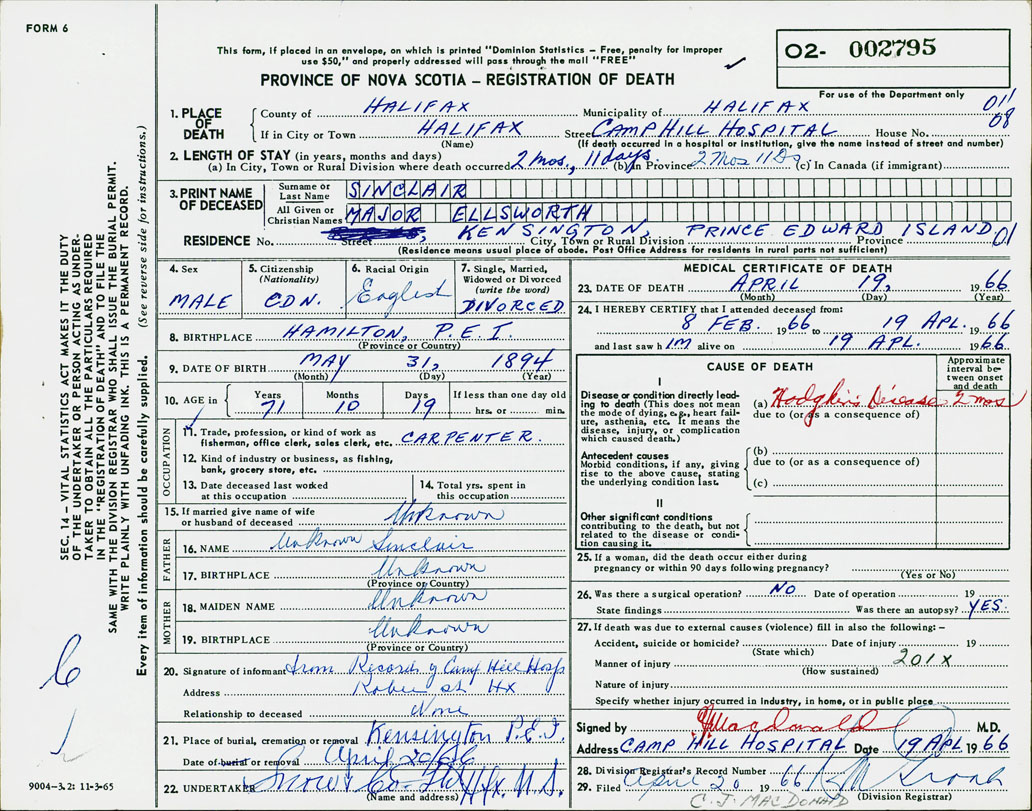 FORM 6
This form, if placed in an envelope, on which is printed "Dominion Statistics – Free, penalty for improper
use $50," and properly addressed will pass through the mail "FREE"
PROVINCE OF NOVA SCOTIA – REGISTRATION OF DEATH
O2- 002795
For use of the Department only
011
08
1. PLACE OF DEATH
County of HALIFAX Municipality of HALIFAX
If in City or Town HALIFAX Street CAMP HILL HOSPITAL House No.
(Name) (If death occurred in a hospital or institution, give the name instead of street and number)
2. LENGTH OF STAY (in years, months and days)
(a) In City, Town or Rural Division where death occurred 2 mos., 11 days. (b) In Province 2 Mos 11 Ds (c) In Canada (if immigrant)
3. PRINT NAME OF DECEASED
Surname or Last Name SINCLAIR
All Given or Christian Names MAJOR ELLSWORTH
RESIDENCE No. Street, KENSINGTON, City, Town or Rural Division PRINCE EDWARD ISLAND Province 01
(Residence means usual place of abode. Post Office Address for residents in rural parts not sufficient)
4. Sex MALE
5. Citizenship (Nationality) CDN.
6. Racial Origin English
7. Single, Married, Widowed or Divorced (write the word) DIVORCED
8. BIRTHPLACE HAMILTON, P.E.I.
(Province or Country)
9. DATE OF BIRTH MAY 31, 1894
(Month) (Day) (Year)
10. AGE in Years 71 Months 10 Days 19 If less than one day old hrs. or min.
OCCUPATION
11. Trade, profession, or kind of work as fisherman, office clerk, sales clerk, etc. CARPENTER.
12. Kind of industry or business, as fishing, bank, grocery store, etc.
13. Date deceased last worked at this occupation
14. Total yrs. spent in this occupation
15. If married give name of wife or husband of deceased Unknown
FATHER
16. NAME Unknown Sinclair
17. BIRTHPLACE Unknown
(Province or Country)
MOTHER
18. MAIDEN NAME Unknown
19. BIRTHPLACE Unknown
(Province or Country)
20. Signature of informant from Records of Camp Hill Hosp
Address Robie St Hx
Relationship to deceased None
21. Place of burial, cremation or removal Kensington P.E.I.
Date of burial or removal April 20/66
22. UNDERTAKER Snow & Co Ltd Hfx N.S.
(Name and address)
MEDICAL CERTIFICATE OF DEATH
23. DATE OF DEATH APRIL 19, 1966
(Month) (Day) (Year)
24. I HEREBY CERTIFY that I attended deceased from:
8 FEB. 1966 to 19 APL. 1966
and last saw h IM alive on 19 APL. 1966
CAUSE OF DEATH
Approximate interval between onset and death
I
Disease or condition directly leading to death (This does not mean the mode of dying, e.g., heart failure, asthenia, etc. It means the disease, injury, or complication which caused death.)
(a) Hodgkin's Disease 2 mos
due to (or as a consequence of)
Antecedent causes
Morbid conditions, if any, giving rise to the above cause, stating the underlying condition last.
(b)
due to (or as a consequence of)
(c)
II
Other significant conditions contributing to the death, but not related to the disease or condition causing it.
25. If a woman, did the death occur either during pregnancy or within 90 days following pregnancy?
(Yes or No)
26. Was there a surgical operation? NO Date of operation 19
State findings Was there an autopsy? YES
27. If death was due to external causes (violence) fill in also the following: –
Accident, suicide or homicide? Date of injury 19
(State which)
Manner of injury 201X
(How sustained)
Nature of injury
Specify whether injury occurred in industry, in home, or in public place
Signed by Macdonald M.D.
Address CAMP HILL HOSPITAL Date 19 APL 1966
28. Division Registrar's Record Number
29. Filed April 20 1966
(Division Registrar)
C. J. MACDONALD
SEC. 14 – VITAL STATISTICS ACT MAKES IT THE DUTY
OF THE UNDERTAKER OR PERSON ACTING AS UNDER-
TAKER TO OBTAIN ALL THE PARTICULARS REQUIRED
IN THE "REGISTRATION OF DEATH" AND TO FILE THE
SAME WITH THE DIVISION REGISTRAR WHO SHALL ISSUE THE BURIAL PERMIT.
WRITE PLAINLY WITH UNFADING INK. THIS IS A PERMANENT RECORD.
Every item of information should be carefully supplied. (See reverse side for instructions.)
9004-3.2: 11-3-65